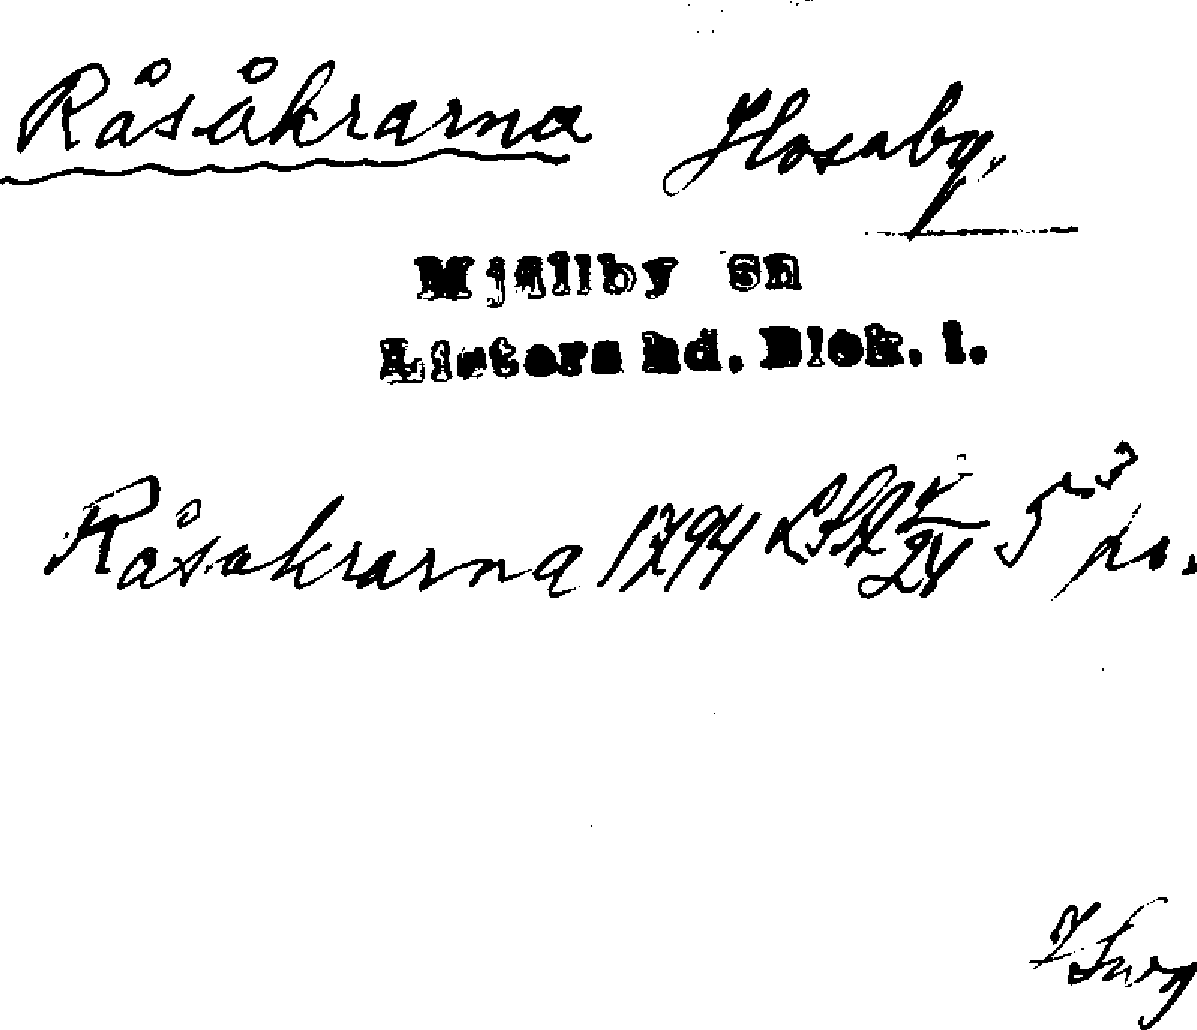 Råsåkrarna Hosaby.
Mjällby sn
Listers hd. Blek. l.
Råsakrarna 1794 LSA 24 5 3